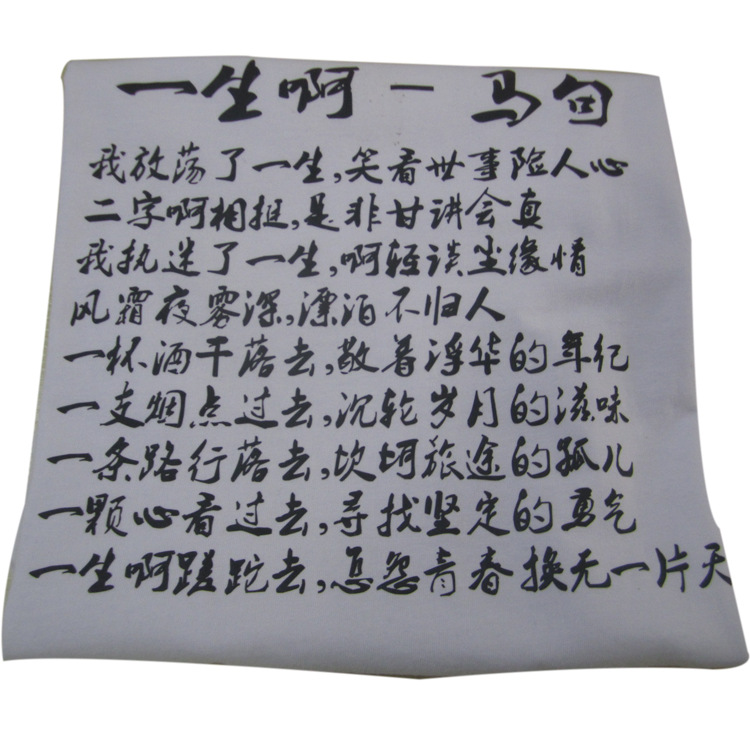 一生啊一马句
我放荡了一生,笑看世事险人心
二字啊相挺,是非甘讲会真
我执迷了一生,啊轻谈尘缘情
风霜夜雾深,漂泊不归人
一杯酒干落去,敬着浮华的年纪
一支烟点过去,沉轮岁月的滋味
一条路行落去,坎坷旅途的孤儿
一颗心看过去,寻找坚定的勇气
一生啊蹉跎去,怎怨青春换无一片天